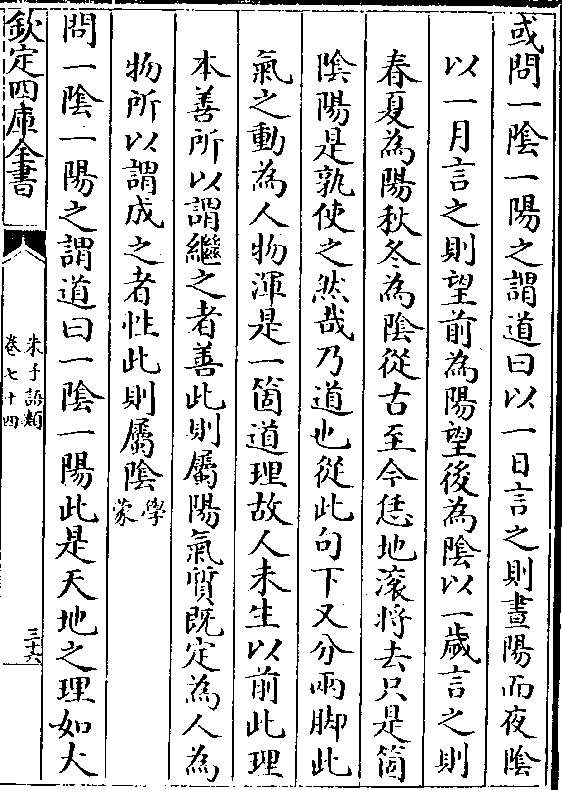 或問一陰一陽之謂道曰以一日言之則晝陽而夜陰
以一月言之則望前為陽望後為陰以一歲言之則
春夏為陽秋冬為陰從古至今恁地滚將去只是箇
陰陽是孰使之然哉乃道也從此句下又分兩脚此
氣之動為人物渾是一箇道理故人未生以前此理
本善所以謂繼之者善此則屬陽氣質既定為人為
物所以謂成之者性此則屬陰學蒙
問一陰一陽之謂道曰一陰一陽此是天地之理如大
欽定四庫全書
朱子語類
卷七十四
三十六